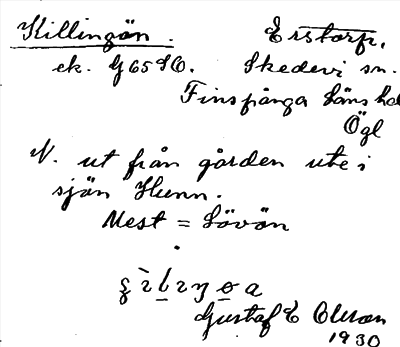 Killingön. Erstorp,
ek. G 65 SO. Skedevi sn.
Finspånga läns hd
Ögl
N. ut från gården ute i
sjön Hunn.
Mest = Lövön
Gustaf E Olson
1930